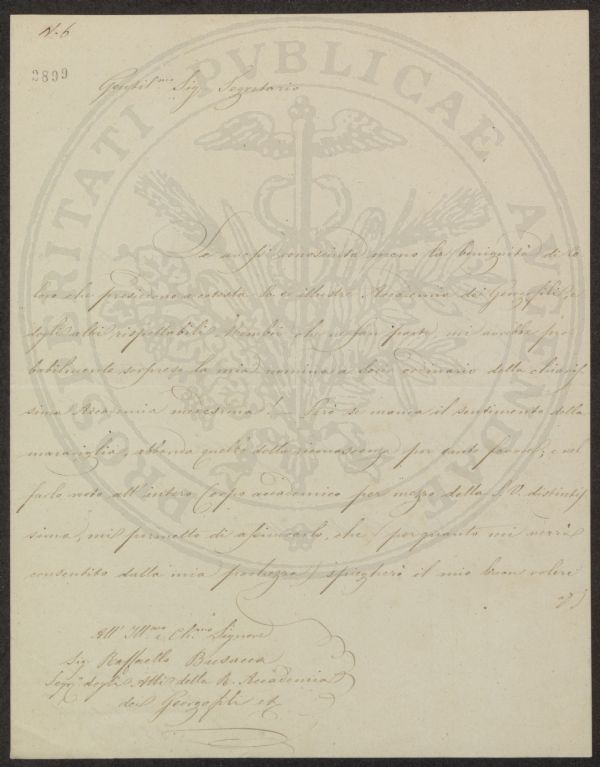 N. 6
2899
Gentil.mo Sig. Segretario
Se avessi conosciuta meno la benignità di co
loro che presiedono a cotesta sì illustre Accademia di Georgofili, e
degli altri rispettabili Membri che ne fan parte, mi avrebbe pro
babilmente sorpreso la mia nomina a Socio ordinario della chiaris
sima Accademia medesima! — Però se manca il sentimento della
maraviglia, abbonda quello della riconoscenza per tanto favore; e nel
farlo noto all'intero Corpo accademico per mezzo della S. V. distintis
sima, mi permetto di assicurarlo, che (per quanto mi verrà
consentito dalla mia pochezza) spiegherò il mio buon volere
All' Ill.mo e Ch.mo Signore
Sig. Raffaello Busacca
Seg.o degli Atti della R. Accademia
dei Georgofili
PROSPERITATI PUBLICAE AUGENDAE